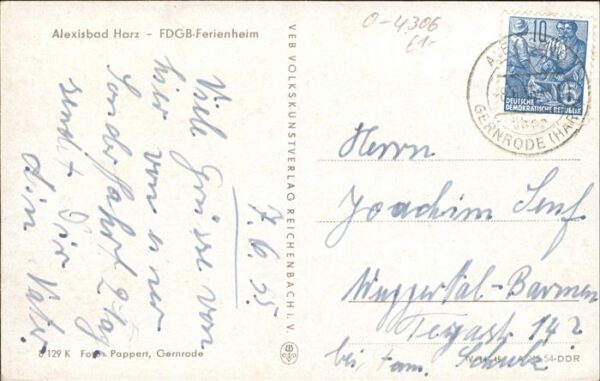 Alexisbad Harz - FDGB-Ferienheim
O-4306
£1-
Viele Grüsse von
hier von einer
Sonderfahrt 2-tag.
sendet Dir
dein Vater
7.6.55.
VEB VOLKSKUNSTVERLAG REICHENBACH i. V.
10
DEUTSCHE
DEMOKRATISCHE REPUBLIK
GERNRODE (HARZ)
Herrn
Joachim Senf
Wuppertal-Barmen
14
bei Fam. Schulz
6 129 K Foto: Pappert, Gernrode
54-DDR